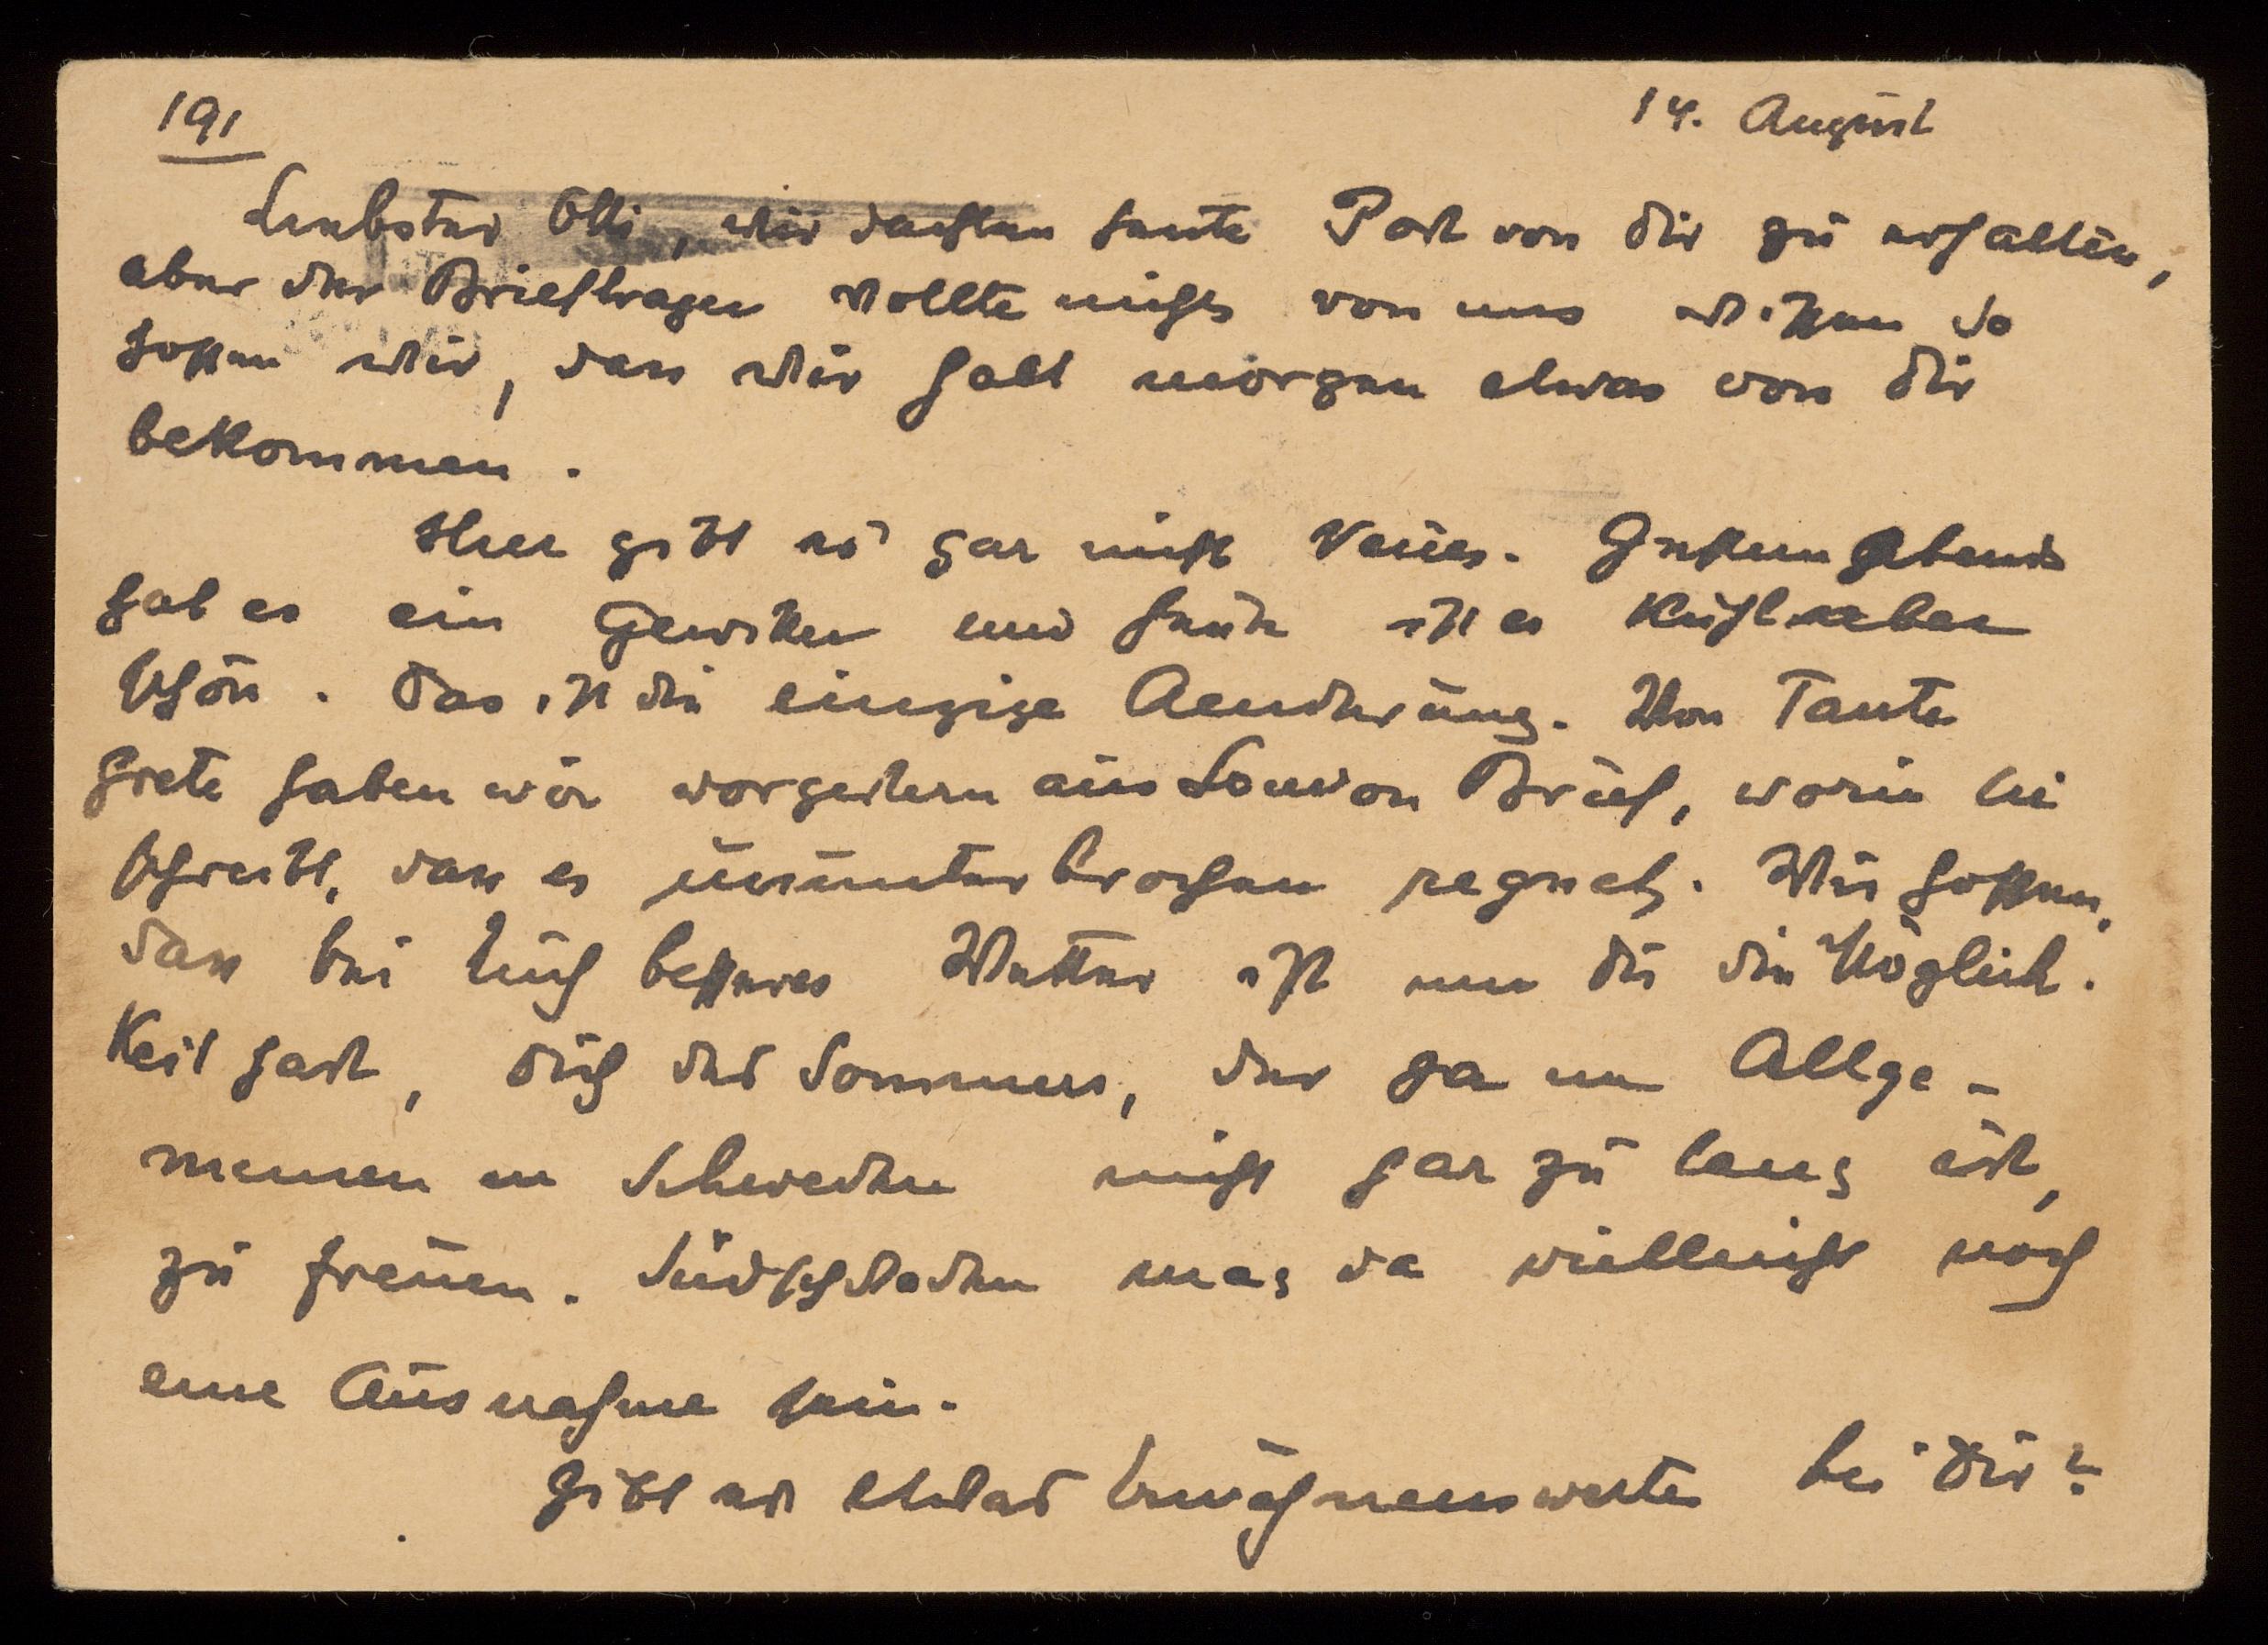 191
14. August
Liebster Olli, wir dachten heute Post von Dir zu erhalten,
aber der Briefträger wollte nichts von uns wissen so
hoffen wir, dass wir halt morgen etwas von Dir
bekommen.
Hier gibt es gar nicht Neues. Gestern Abends
gab es ein Gewitter und heute ist es kühl aber
schön. Das ist die einzige Aenderung. Von Tante
Grete haben wir vorgestern aus London Brief, worin sie
schreibt, dass es ununterbrochen regnet. Wir hoffen,
dass bei Euch besseres Wetter ist und Du die Möglich-
keit hast, Dich des Sommers, der ja im Allge-
meinen in Schweden nicht gar zu lang ist,
zu freuen. Südschweden mag da vielleicht noch
eine Ausnahme sein.
Gibt es etwas Erwähnenswertes bei Dir?